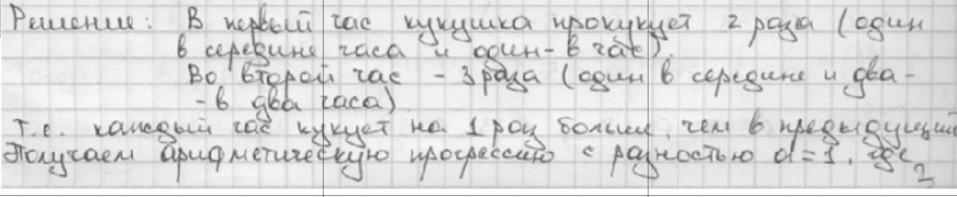 Решение: В первый час кукушка прокукует 2 раза (один
в середине часа и один - в час).
Во второй час - 3 раза (один в середине и два -
- в два часа)
Т.е. каждый час кукует на 1 раз больше, чем в предыдущий
Получаем арифметическую прогрессию с разностью d=1, где